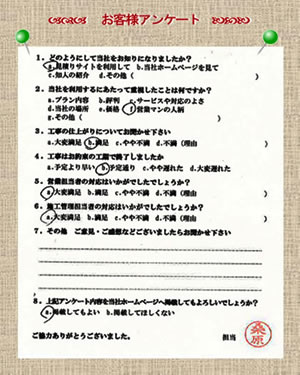 お客様アンケート
1．どのようにして当社をお知りになりましたか？
a.見積りサイトを利用して b.当社ホームページを見て
c.知人の紹介 d.その他（ ）
2．当社を利用するにあたって重視したことは何ですか？
a.プラン内容 b.評判 c.サービスや対応のよさ
d.当社の場所 e.価格 f.営業マンの人柄
g.その他（ ）
3．工事の仕上がりについてお聞かせ下さい
a.大変満足 b.満足 c.やや不満 d.不満（理由 ）
4．工事はお約束の工期で終了しましたか
a.予定より早い b.予定通り c.やや遅れた d.大変遅れた
5．営業担当者の対応はいかがでしたでしょうか？
a.大変満足 b.満足 c.やや不満 d.不満（理由 ）
6．施工管理担当者の対応はいかがでしたでしょうか？
a.大変満足 b.満足 c.やや不満 d.不満（理由 ）
7．その他 ご意見・ご感想などございましたらお聞かせ下さい
8．上記アンケート内容を当社ホームページへ掲載してもよろしいでしょうか？
a.掲載してもよい b.掲載してほしくない
ご協力ありがとうございました。 担当 桑原